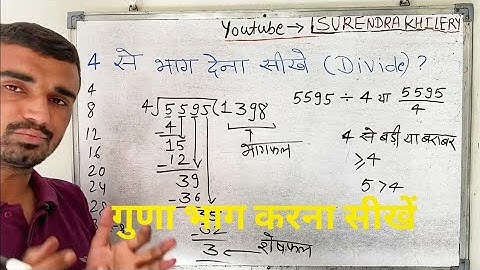 Youtube → SURENDRA KHILERY
4 से भाग देना सीखे (Divide) ?
4
4
8
12
16
20
24
28
4√5595(1398
-4
15
-12
39
-36
35
-32
3 ← शेषफल
भागफल
5595 ÷ 4 या 5595/4
4 से बड़ी या बराबर
≥4
5 > 4
गुणा भाग करना सीखें